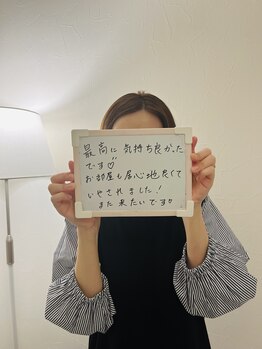 最高に気持ち良かった
です♡
お部屋も居心地良くて
いやされました！
また来たいです♡